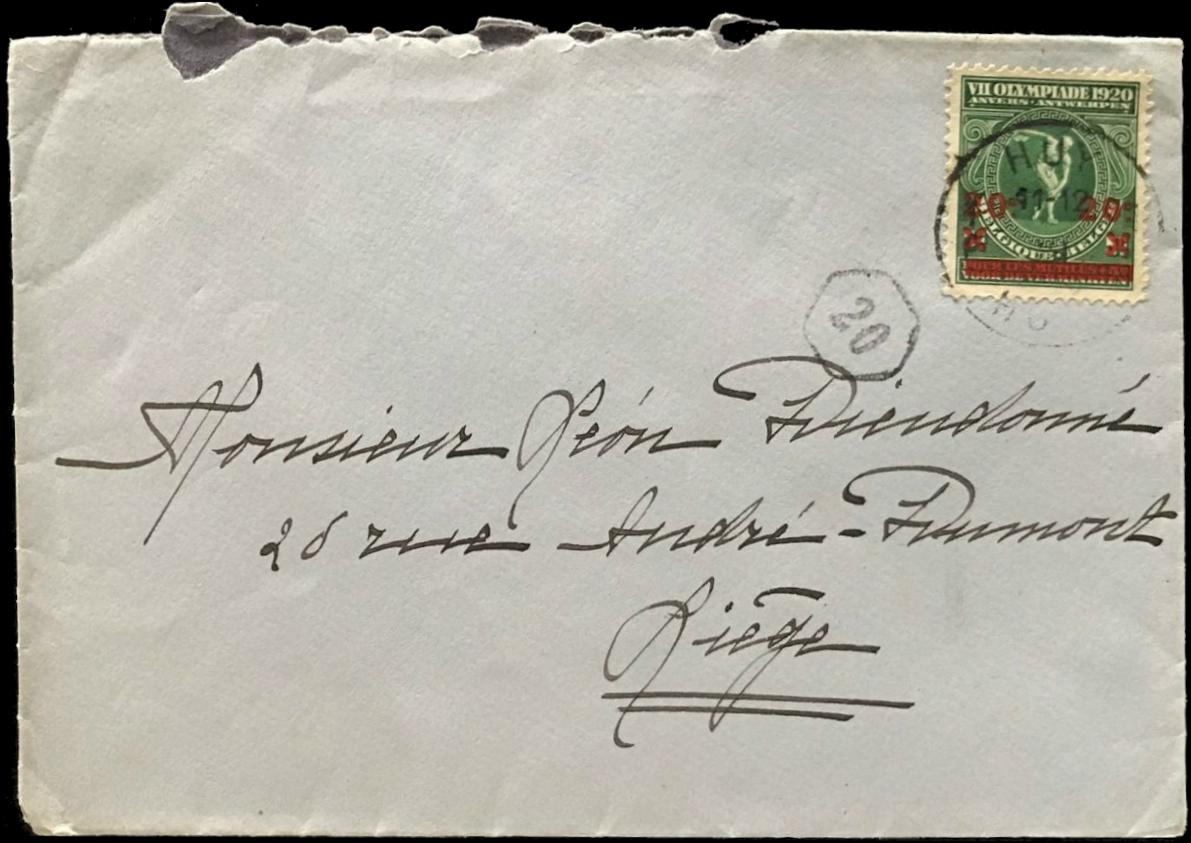 VII OLYMPIADE 1920
ANVERS·ANTWERPEN
HUY
11-12
20c 20c
BELGIQUE·BELGIË
HU
20
Monsieur Léon Dieudonné
26 rue André-Dumont
Liège